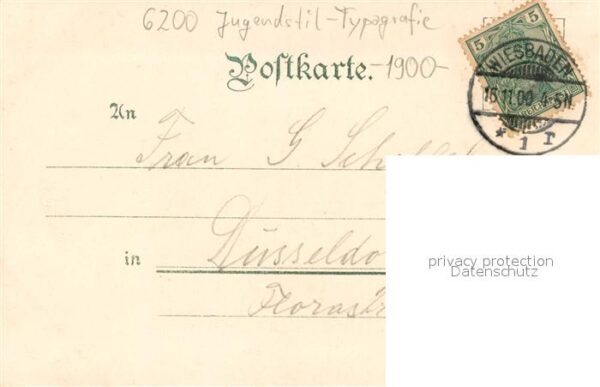 6200 Jugendstil-Typografie
Postkarte. -1900-
5 5
WIESBADEN
15.11.00. 4-5N.
* 1 r
An
Frau G.
in Düsseldo
Florastr
privacy protection
Datenschutz